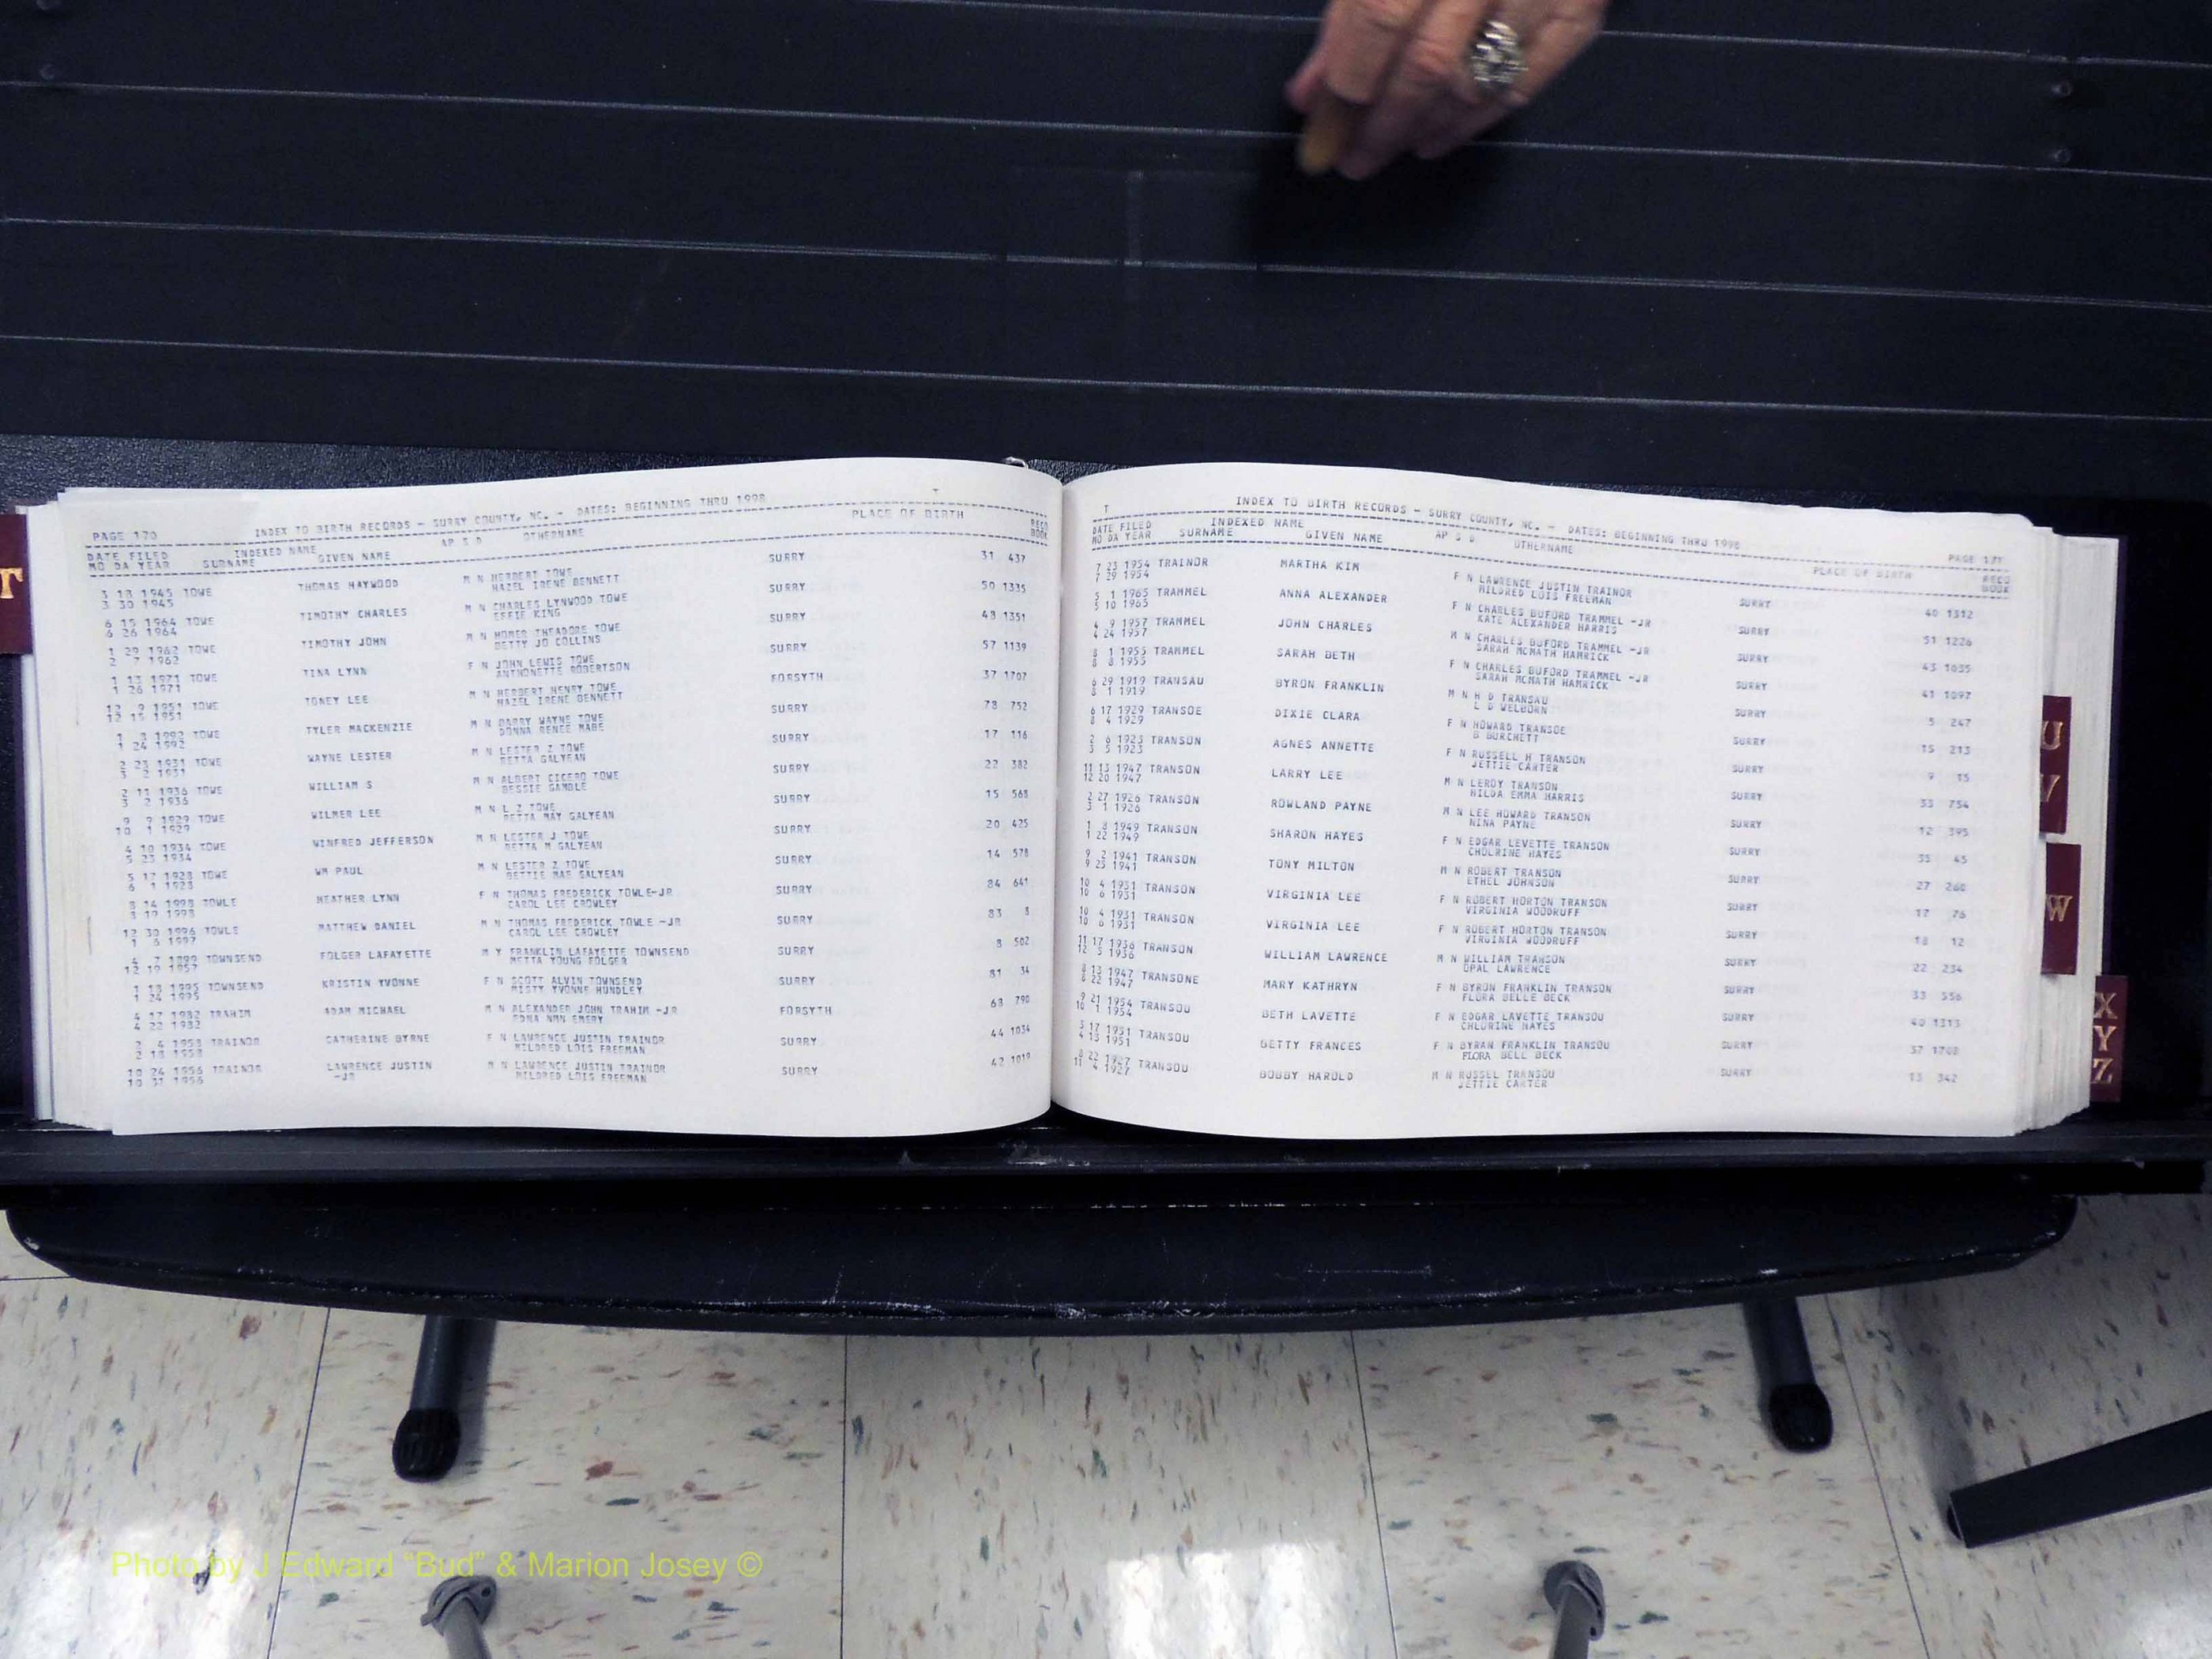 T
PAGE 170 INDEX TO BIRTH RECORDS - SURRY COUNTY, NC. - DATES: BEGINNING THRU 1998
DATE FILED INDEXED NAME AP S D OTHERNAME PLACE OF BIRTH RECO
MO DA YEAR SURNAME GIVEN NAME BOOK
3 18 1945 TOWE THOMAS HAYWOOD M N HERBERT TOWE SURRY 31 437
3 30 1945 HAZEL IRENE BENNETT
6 15 1964 TOWE TIMOTHY CHARLES M N CHARLES LYNWOOD TOWE SURRY 50 1335
6 26 1964 EFFIE KING
1 29 1962 TOWE TIMOTHY JOHN M N HOMER THEADORE TOWE SURRY 48 1351
2 7 1962 BETTY JO COLLINS
1 13 1971 TOWE TINA LYNN F N JOHN LEWIS TOWE SURRY 57 1139
1 26 1971 ANTHONETTE ROBERTSON
12 9 1951 TOWE TONEY LEE M N HERBERT HENRY TOWE FORSYTH 37 1707
12 15 1951 HAZEL IRENE BENNETT
1 8 1992 TOWE TYLER MACKENZIE M N BARRY WAYNE TOWE SURRY 78 752
1 24 1992 DONNA RENEE MABE
2 23 1931 TOWE WAYNE LESTER M N LESTER Z TOWE SURRY 17 116
3 2 1931 BETTA GALYEAN
2 11 1936 TOWE WILLIAM S M N ALBERT CICERO TOWE SURRY 22 382
3 2 1936 BESSIE GAMBLE
9 9 1929 TOWE WILMER LEE M N L Z TOWE SURRY 15 568
10 1 1929 BETTA MAY GALYEAN
4 10 1934 TOWE WINFRED JEFFERSON M N LESTER J TOWE SURRY 20 425
5 23 1934 BETTA M GALYEAN
5 17 1928 TOWE WM PAUL M N LESTER Z TOWE SURRY 14 578
6 1 1928 BETTIE MAE GALYEAN
8 14 1998 TOWLE HEATHER LYNN F N THOMAS FREDERICK TOWLE-JR SURRY 84 641
8 19 1998 CAROL LEE CROWLEY
12 30 1996 TOWLE MATTHEW DANIEL M N THOMAS FREDERICK TOWLE -JR SURRY 83 8
1 6 1997 CAROL LEE CROWLEY
4 7 1899 TOWNSEND FOLGER LAFAYETTE M Y FRANKLIN LAFAYETTE TOWNSEND SURRY 8 502
12 19 1957 METTA YOUNG FOLGER
1 18 1995 TOWNSEND KRISTIN YVONNE F N SCOTT ALVIN TOWNSEND SURRY 81 34
1 24 1995 MISTY YVONNE HUNDLEY
4 17 1982 TRAHIM ADAM MICHAEL M N ALEXANDER JOHN TRAHIM -JR FORSYTH 68 790
4 22 1982 EDNA NMN EMERY
2 4 1958 TRAINOR CATHERINE BYRNE F N LAWRENCE JUSTIN TRAINOR SURRY 44 1034
2 18 1958 MILDRED LOIS FREEMAN
10 24 1956 TRAINOR LAWRENCE JUSTIN M N LAWRENCE JUSTIN TRAINOR SURRY 42 1019
10 31 1956 -JR MILDRED LOIS FREEMAN
T INDEX TO BIRTH RECORDS - SURRY COUNTY, NC. - DATES: BEGINNING THRU 1998 PAGE 171
DATE FILED INDEXED NAME AP S D OTHERNAME PLACE OF BIRTH RECO
MO DA YEAR SURNAME GIVEN NAME BOOK
7 23 1954 TRAINOR MARTHA KIM F N LAWRENCE JUSTIN TRAINOR SURRY 40 1312
7 29 1954 MILDRED LOIS FREEMAN
5 1 1965 TRAMMEL ANNA ALEXANDER F N CHARLES BUFORD TRAMMEL -JR SURRY 51 1226
5 10 1965 KATE ALEXANDER HARRIS
4 9 1957 TRAMMEL JOHN CHARLES M N CHARLES BUFORD TRAMMEL -JR SURRY 43 1055
4 24 1957 SARAH MCMATH HAMRICK
8 1 1955 TRAMMEL SARAH BETH F N CHARLES BUFORD TRAMMEL -JR SURRY 41 1097
8 8 1955 SARAH MCMATH HAMRICK
6 29 1919 TRANSAU BYRON FRANKLIN M N H D TRANSAU SURRY 5 247
8 1 1919 L D WELBORN
6 17 1929 TRANSOE DIXIE CLARA F N HOWARD TRANSOE SURRY 15 213
8 4 1929 B BURCHETT
2 6 1923 TRANSON AGNES ANNETTE F N RUSSELL H TRANSON SURRY 9 15
3 5 1923 JETTIE CARTER
11 13 1947 TRANSON LARRY LEE M N LEROY TRANSON SURRY 33 754
12 20 1947 HILDA EMMA HARRIS
2 27 1926 TRANSON ROWLAND PAYNE M N LEE HOWARD TRANSON SURRY 12 395
3 1 1926 NINA PAYNE
1 8 1949 TRANSON SHARON HAYES F N EDGAR LEVETTE TRANSON SURRY 35 45
1 22 1949 CHOLRINE HAYES
9 2 1941 TRANSON TONY MILTON M N ROBERT TRANSON SURRY 27 260
9 25 1941 ETHEL JOHNSON
10 4 1931 TRANSON VIRGINIA LEE F N ROBERT HORTON TRANSON SURRY 17 76
10 6 1931 VIRGINIA WOODRUFF
10 4 1931 TRANSON VIRGINIA LEE F N ROBERT HORTON TRANSON SURRY 18 12
10 6 1931 VIRGINIA WOODRUFF
11 17 1936 TRANSON WILLIAM LAWRENCE M N WILLIAM TRANSON SURRY 22 234
12 5 1936 OPAL LAWRENCE
8 13 1947 TRANSONE MARY KATHRYN F N BYRON FRANKLIN TRANSON SURRY 33 556
8 22 1947 FLORA BELLE BECK
9 21 1954 TRANSOU BETH LAVETTE F N EDGAR LAVETTE TRANSOU SURRY 40 1313
10 1 1954 CHLURINE HAYES
3 17 1951 TRANSOU BETTY FRANCES F N BYRAN FRANKLIN TRANSOU SURRY 37 1702
4 13 1951 FLORA BELL BECK
8 22 1927 TRANSOU BOBBY HAROLD M N RUSSEL TRANSOU SURRY 13 342
11 4 1927 JETTIE CARTER
T
U
V
W
X
Y
Z
Photo by J Edward "Bud" & Marion Josey ©